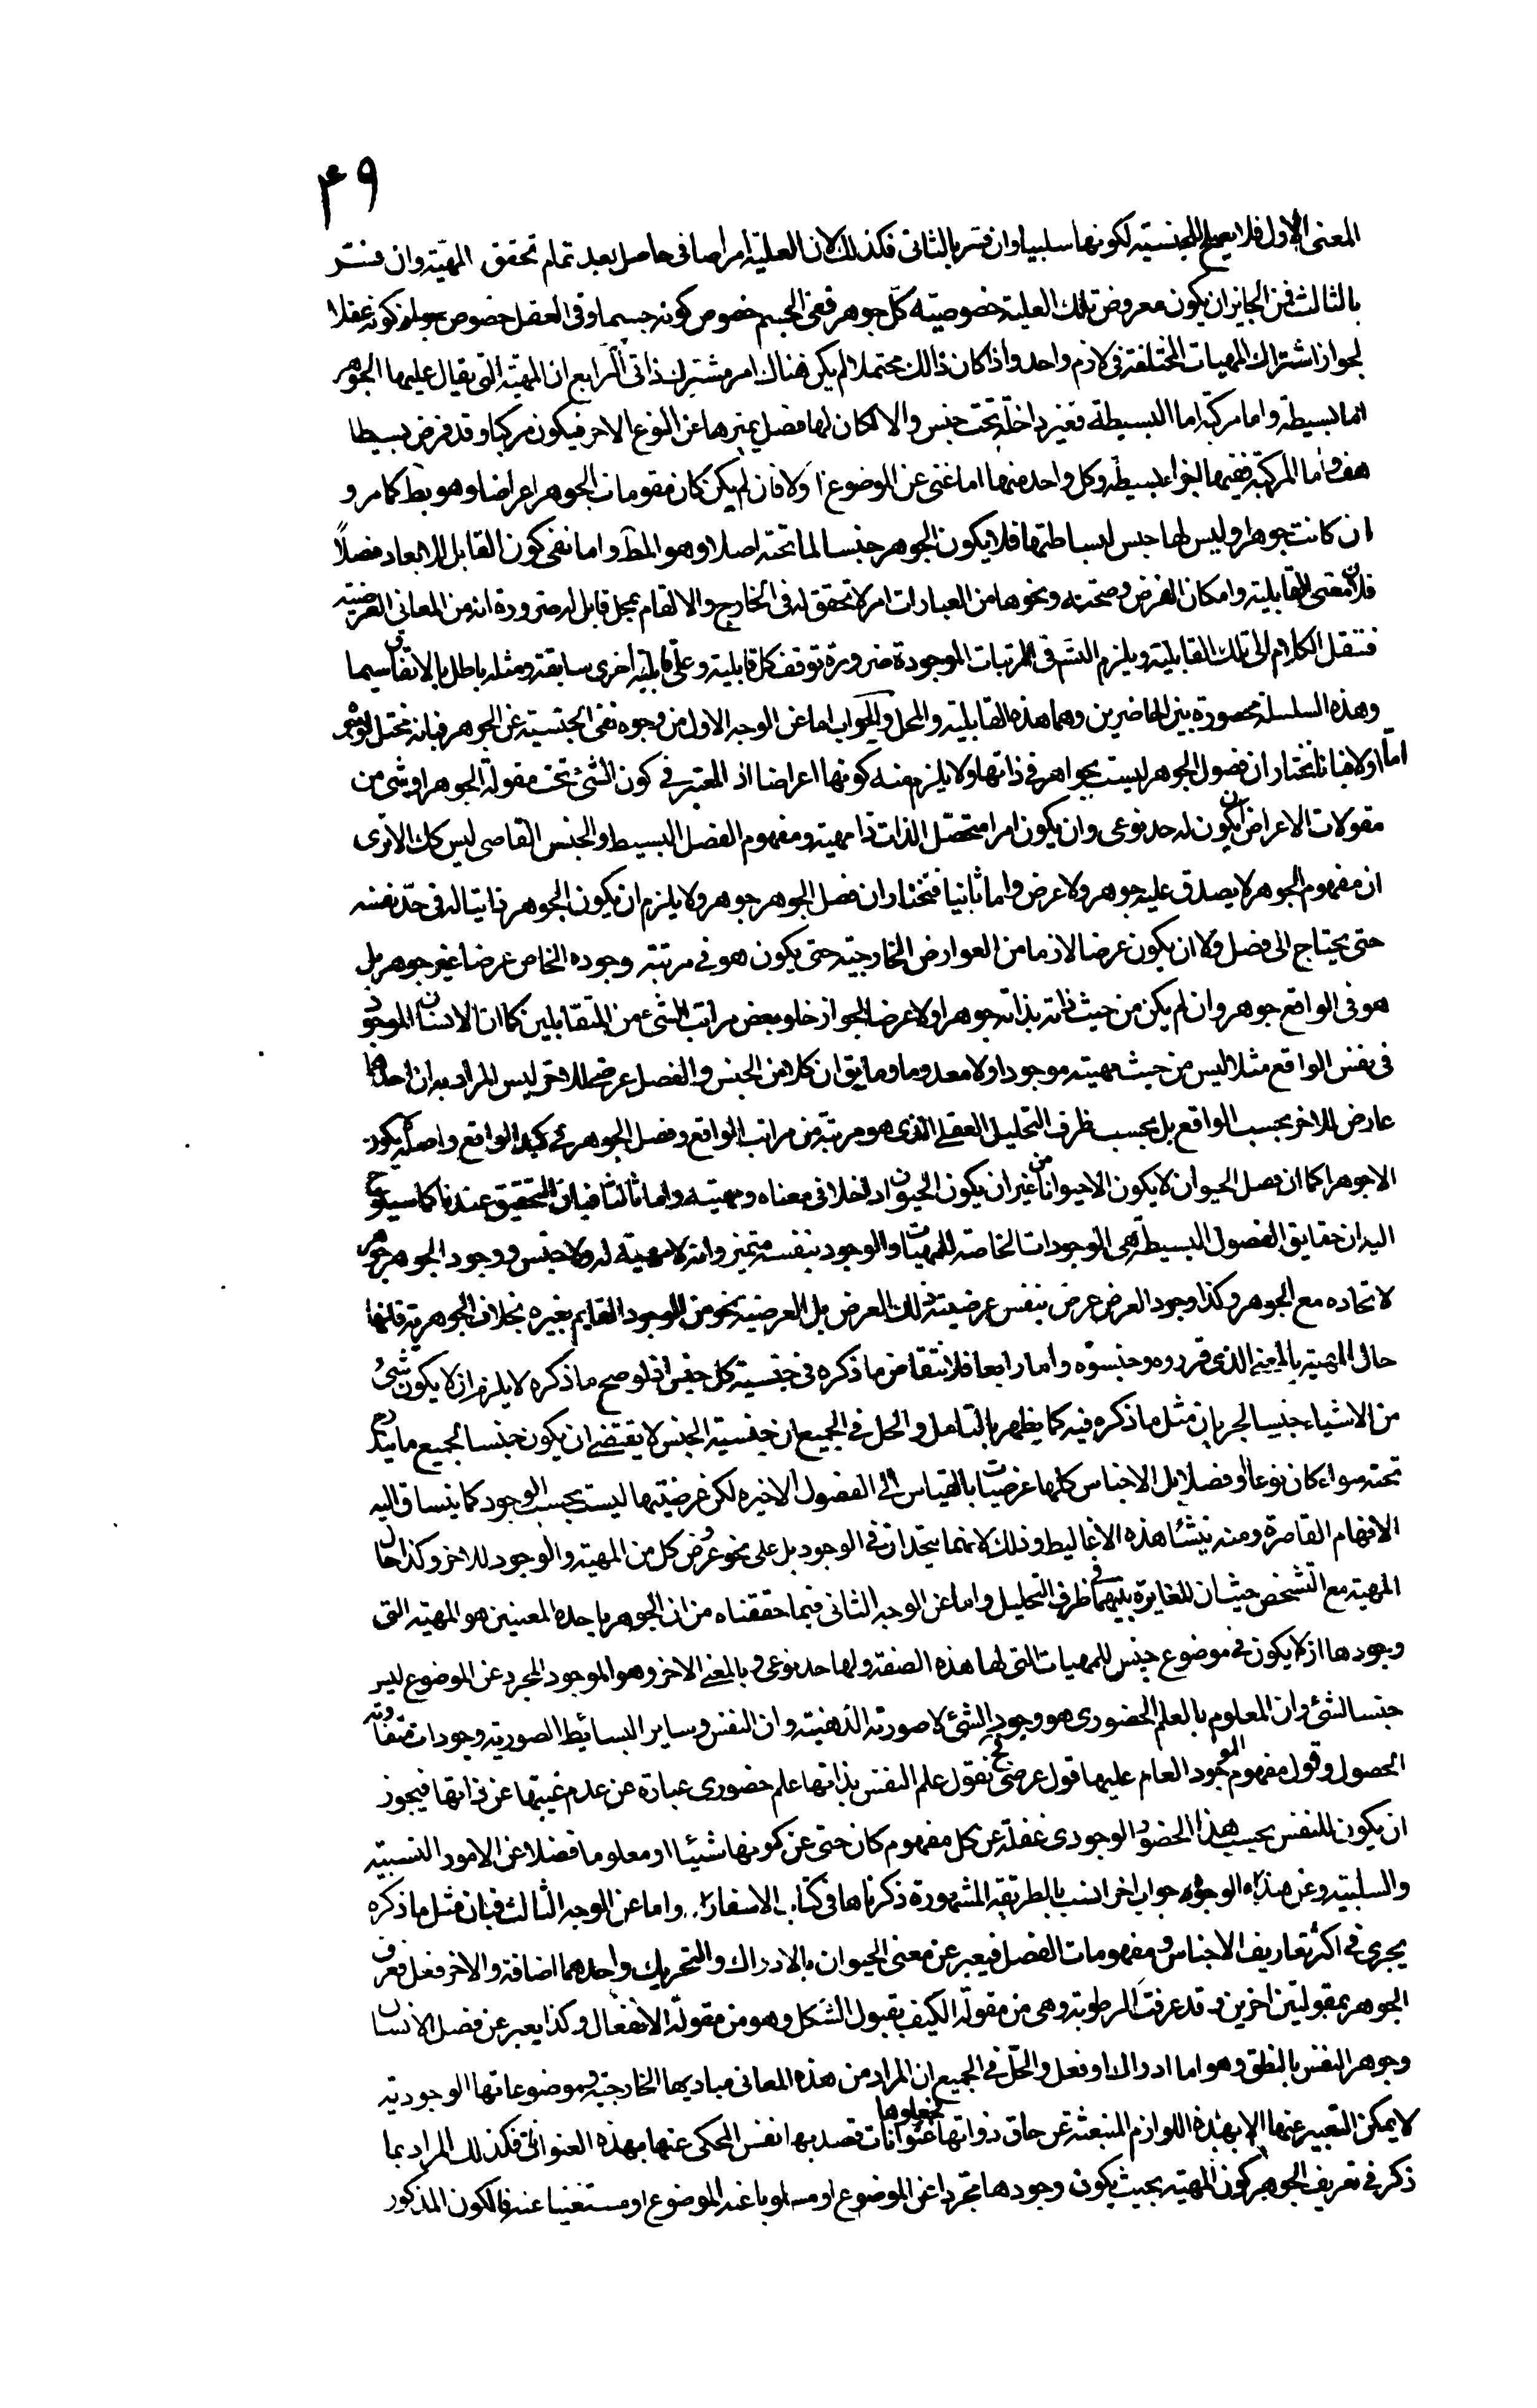 ٤٩
المعنى الاول فلا يصلح للجنسية لكونها سلبيا وان فسر بالثانى فكذلك لان العلية امر اضافى حاصل بعد تمام تحقق المهية وان فسر
بالثالث فمن الجايز ان يكون معروض تلك العلية خصوصية كل جوهر ففى الجسم خصوص كونه جسما وفى العقل خصوص كونه عقلا
لجواز اشتراك المهيات المختلفة فى لازم واحد واذا كان ذالك محتملا لم يكن هناك امر مشترك ذاتى الرابع ان المهية التى يقال عليها الجوهر
اما بسيطة واما مركبة اما البسيطة فغير داخلة تحت جنس والا لكان لها فصل يميزها عن النوع الاخر فيكون مركبا وقد فرض بسيطا
هف واما المركبة ففيها اجزاء بسيطة وكل واحد منها اما غنى عن الموضوع اولا فان لم يكن كان مقومات الجوهر اعراضا وهو بط كما مر و
ان كانت جوهرا وليس لها جنس لبساطتها فلا يكون الجوهر جنسا لما تحته اصلا وهو المط واما نفى كون القابل للابعاد فصلا
فلان معنى القابلية وامكان الفرض وصحته ونحوها من العبارات امر لا تحقق له فى الخارج والا لقام بمحل قابل له ضرورة انه من المعانى العرضية
فننقل الكلام الى تلك القابلية ويلزم التس فى المرتبات الموجودة ضرورة توقف كل قابلية على قابلية اخرى سابقة ومثله باطل بالاتفاق سيما
وهذه السلسلة محصورة بين الحاضرين وهما هذه القابلية والمحل والجواب اما عن الوجه الاول من وجوه نفى الجنسية عن الجوهر فبانه مختل لوجوه
اما اولا فبانا نختار ان فصول الجوهر ليست بجواهر فى ذاتها ولا يلزم منه كونها اعراضا اذ المعتبر فى كون الشئ تحت مقولة الجوهر او شى من
مقولات الاعراض ان يكون له حد نوعى وان يكون امرا متحصل الذات ذا مهية ومفهوم الفصل البسيط والجنس القاصى ليس كك الا ترى
ان مفهوم الجوهر لا يصدق عليه جوهر ولا عرض واما ثانيا فنختار ان فصل الجوهر جوهر ولا يلزم ان يكون الجوهر ذاتيا له فى حد نفسه
حتى يحتاج الى فصل ولا ان يكون عرضا لازما من العوارض الخارجية حتى يكون هو فى مرتبة وجوده الخاص عرضا غير جوهر بل
هو فى الواقع جوهر وان لم يكن من حيث ذاته بذاته جوهرا ولا عرضا لجواز خلو بعض مراتب الشىء عن المتقابلين كما ان الانسان الموجود
فى نفس الواقع مثلا ليس من حيث مهيته موجودا ولا معدوما وما يق ان كلا من الجنس والفصل عرضى للاخر ليس المراد به ان احدهما
عارض للاخر بحسب الواقع بل بحسب ظرف التحليل العقلى الذى هو مرتبة من مراتب الواقع وفصل الجوهر فى كبد الواقع واصله يكون
الاجوهرا كما ان فصل الحيوان لا يكون الاحيوانا من غير ان يكون الحيوان داخلا فى معناه ومهيته واما ثالثا فبان التحقيق عندنا كما سيلوح
اليه ان حقايق الفصول البسيطة هى الوجودات الخاصة للمهيات والوجود بنفسه متميز وانه لا مهية له ولا جنس ووجود الجوهر جوهر
لاتحاده مع الجوهر وكذا وجود العرض عرض بنفس عرضية ذلك العرض بل العرضية نحو من الوجود القايم بغيره بخلاف الجوهرية فانها
حال المهية بالمعنى الذى قرروه وجنسوه واما رابعا فلانتقاض ما ذكره فى جنسية كل جنس اذ لو صح ما ذكره لا يلزم ان لا يكون شئ
من الاشياء جنسا لجريان مثل ما ذكره فيه كما يظهر بالتامل والحل فى الجميع ان جنسية الجنس لا يقتضى ان يكون جنسا لجميع ما يندرج
تحته سواء كان نوعا او فصلا بل الاجناس كلها عرضيات بالقياس الى الفصول الاخيره لكن عرضيتها ليست بحسب الوجود كما ينساق اليه
الافهام القاصرة ومنه ينشأ هذه الاغاليط وذلك لانهما يتحدان فى الوجود بل على نحو عروض كل من المهية والوجود للاخر وكذا حال
المهية مع التشخص حيث ان للمغايرة بينهما فى ظرف التحليل واما عن الوجه الثانى فبما حققناه من ان الجوهر باحد المعنيين هو المهية التى
وجودها ان لا يكون فى موضوع جنس للمهيات التى لها هذه الصفة ولها حد نوعى وبالمعنى الاخر وهو الموجود المجرد عن الموضوع ليس
جنسا لشئ وان المعلوم بالعلم الحضورى هو وجود الشئ لا صورته الذهنية وان النفس وساير البسائط الصورية وجودات متفاوتة
الحصول وقول مفهوم الموجود العام عليها قول عرضى فح نقول علم النفس بذاتها علم حضورى عبارة عن عدم غيبتها عن ذاتها فيجوز
ان يكون للنفس بحسب هذا الحضور الوجودى غفلة عن كل مفهوم كان حتى عن كونها شيئا او معلوما فضلا عن الامور النسبية
والسلبية وعن هذه الوجوه جواب اخر انسب بالطريقة المشهورة ذكرناها فى كتاب الاسفار واما عن الوجه الثالث فبان مثل ما ذكره
يجرى فى اكثر تعاريف الاجناس ومفهومات الفصل فيعبر عن معنى الحيوان بالادراك والتحريك واحدهما اضافة والاخر فعل فعرف
الجوهر بمقولتين اخرين وقد عرفت الرطوبة وهى من مقولة الكيف بقبول الشكل وهو من مقولة الانفعال وكذا يعبر عن فصل الانسان
وجوهر النفس بالنطق وهو اما ادراك او فعل والحل فى الجميع ان المراد من هذه المعانى مباديها الخارجية وموضوعاتها الوجودية
لا يمكن التعبير عنها الا بهذه اللوازم المنبعثة عن حاق ذواتها فجعلوها عنوانات قصد بها نفس المحكى عنها بهذه العنوانات فكذلك المراد بما
ذكر فى تعريف الجوهر كون المهية بحيث يكون وجودها مجردا عن الموضوع او مسلوبا عنه الموضوع او مستغنيا عنه فالكون المذكور